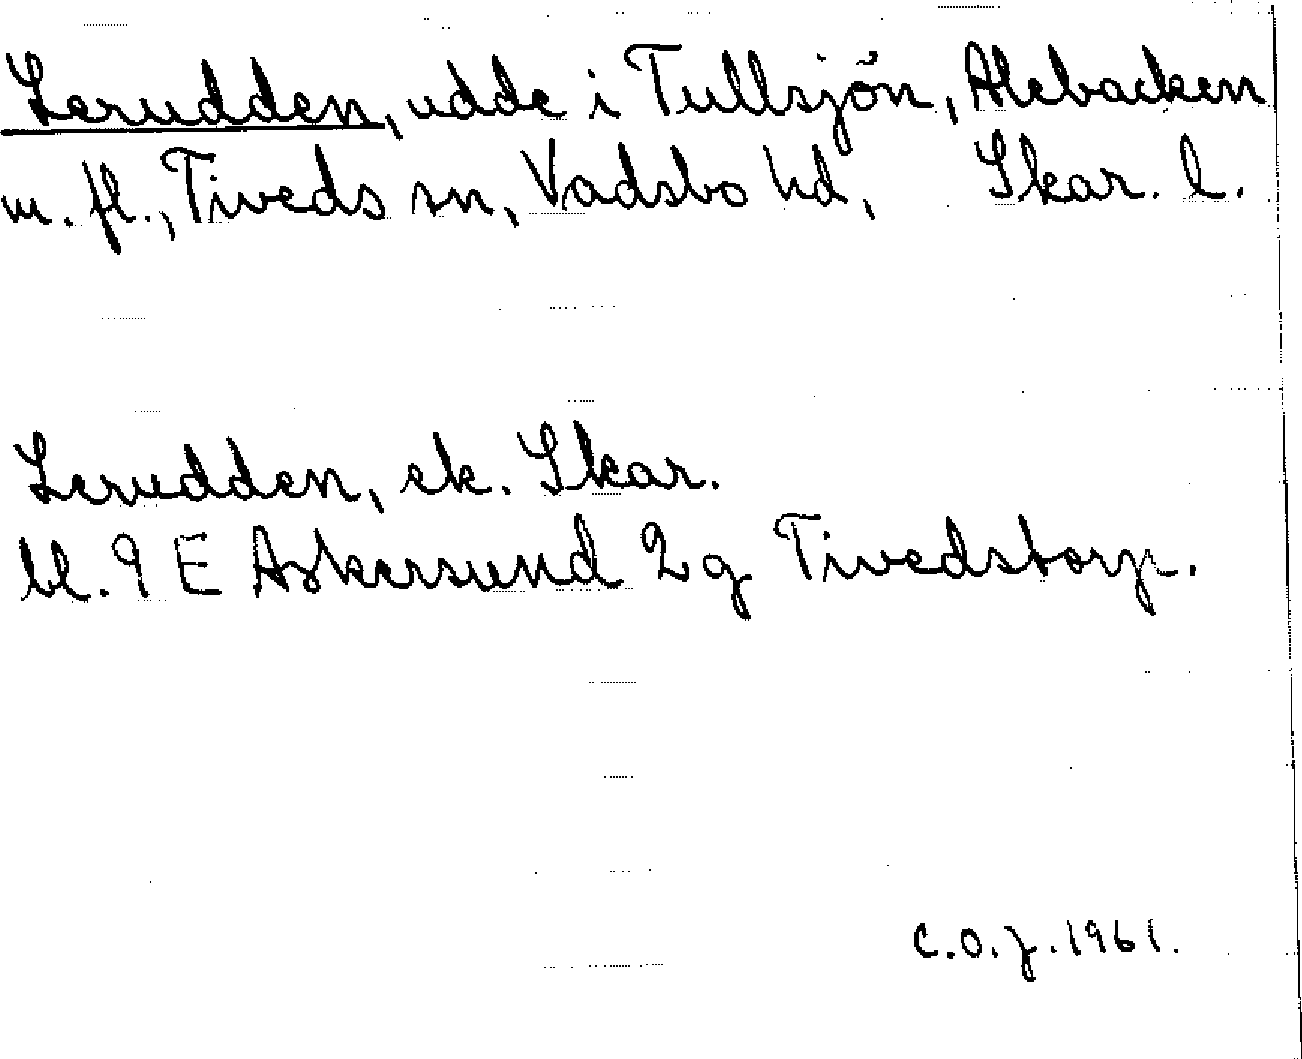 Lerudden, udde i Tullsjön, Alebacken
m. fl., Tiveds sn, Vadsbo hd, Skar. l.
Lerudden, ek. Skar.
bl. 9 E Askersund 2g Tivedstorp.
C.O.J. 1961.